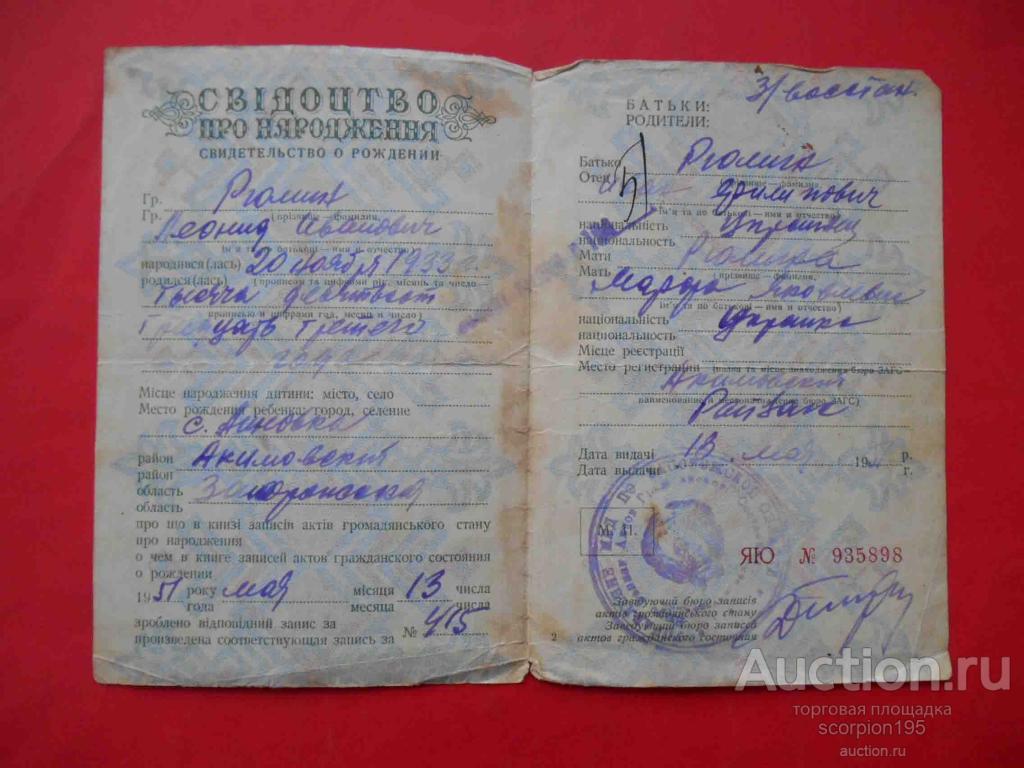 СВІДОЦТВО
ПРО НАРОДЖЕННЯ
СВИДЕТЕЛЬСТВО О РОЖДЕНИИ
Гр.
Гр.
(прізвище — фамилия,
Леонид
ім'я та по батькові — имя и отчество)
народився(лась) 20 ноября 1933 г.
родился(лась) (прописом та цифрами рік, місяць та число
тысяча девятьсот
прописью и цифрами год, месяц и число)
тридцать третьего
года
Місце народження дитини: місто, село
Место рождения ребенка: город, селение
с.
район Акимовский
район
область
область
про що в книзі записів актів громадянського стану
про народження
о чем в книге записей актов гражданского состояния
о рождении
1951 року мая місяця 13 числа
года месяца числа
зроблено відповідний запис за
произведена соответствующая запись за № 415
З/восстан.
БАТЬКИ:
РОДИТЕЛИ:
Батько
Отец
(прізвище — фамилия,
ім'я та по батькові — имя и отчество)
національність украинец
национальность
Мати
Мать (прізвище — фамилия,
ім'я та по батькові — имя и отчество)
національність украинка
национальность
Місце реєстрації
Место регистрации (назва та місце знаходження бюро ЗАГС
Акимовский
наименование и местонахождение бюро ЗАГС)
Райзагс
Дата видачі 13 мая 1951 р.
Дата выдачи г.
М. П.
ЯЮ № 935898
Завідуючий бюро записів
актів громадянського стану
Заведующий бюро записей
актов гражданского состояния
2
Auction.ru
торговая площадка
scorpion195
auction.ru